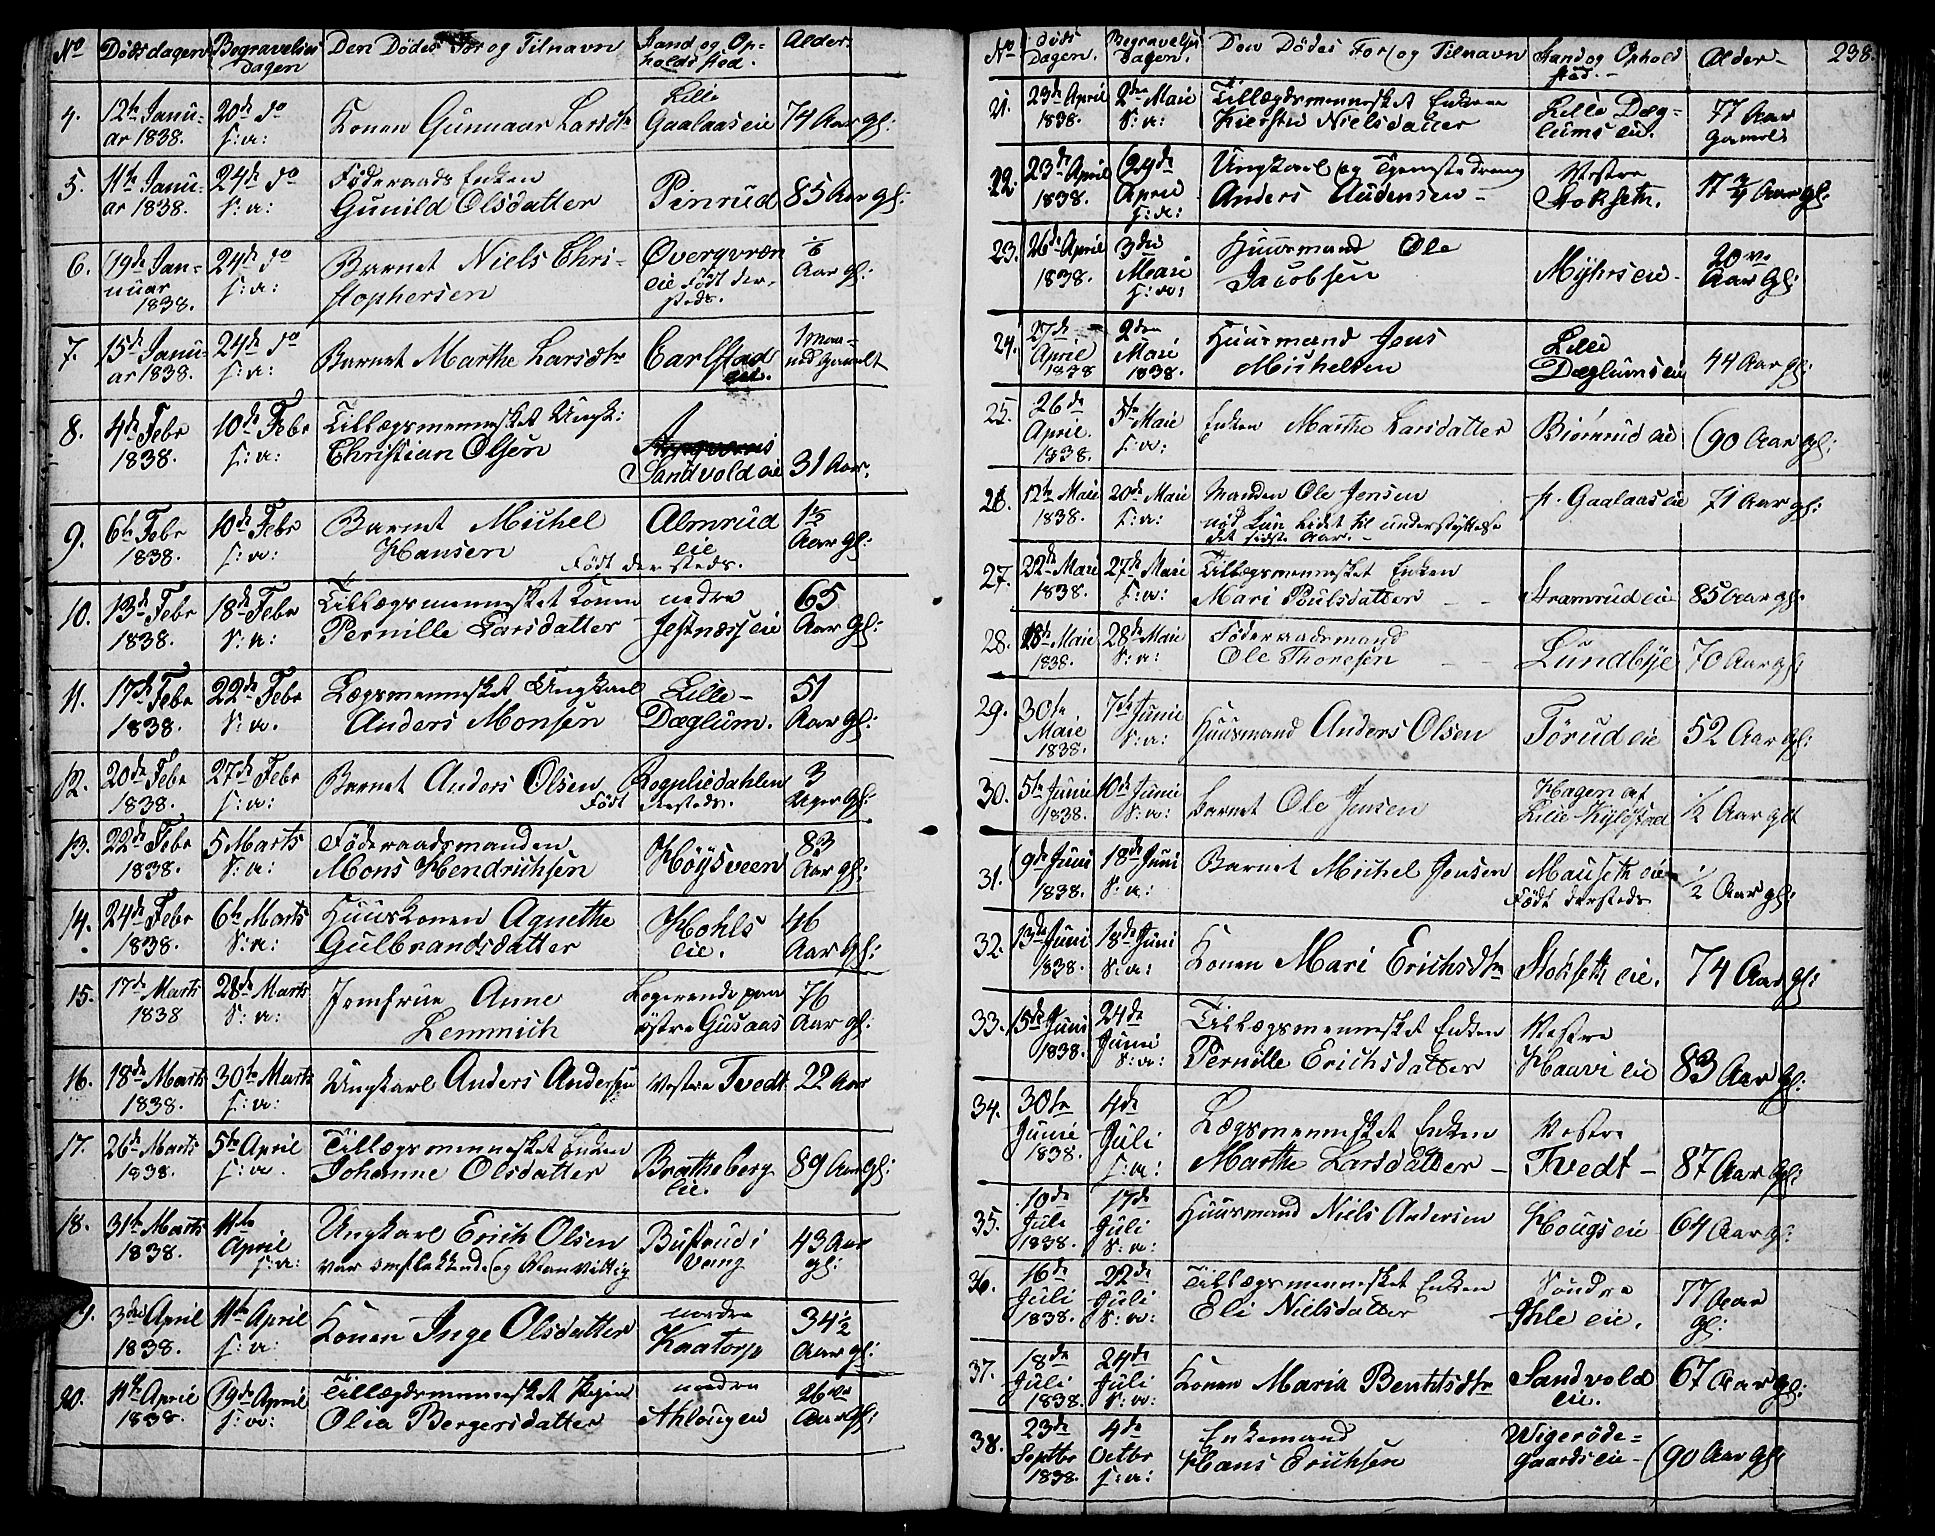 No Dödsdagen Begravelses Dagen Den Dödes For og Tilnavn Stand og Opholdsstæd. Alder.
4. 12te Januar 1838. 20de do s: a: Konen Gunnaar Larsdtr Lille Gaalaas eie 74 Aar gl:
5. 11te Januar 1838. 24de do s: a: Föderaads Enken Gunild Olsdatter Pinrud 85 Aar gl:
6. 19de Januar 1838. 24de do s: a: Barnet Niels Christophersen Overqværn eie Födt dersteds. 1/6 Aar gl:
7. 15de Januar 1838. 24de do s: a: Barnet Marthe Larsdtr Carlstad eie. 1 Maaned Gamelt
8. 4de Febr 1838. 10de Febr s: a: Tillægsmennesket Ungk: Christian Olsen Sandvold eie 31 Aar.
9. 6te Febr 1838. 10de Febr s: a: Barnet Michel Hansen Födt dersteds. Almrud eie Aar gl:
10. 13de Febr 1838. 18de Febr s: a: Tillægsmennesket Konen Pernille Larsdatter nedre Jestnæss eie 65 Aar gl:
11. 17de Febr 1838. 22de Febr s: a. Lægsmennesket Ungkarl Anders Monsen Lille Dæglum. 51 Aar gl:
12. 20de Febr 1838. 27de Febr s: a: Barnet Anders Olsen Födt dersteds. Rognliedahlen 3 Uger gl:
13. 22de Febr 1838. 5 Marts s: a: Föderaadsmanden Mons Hendrichsen Höysveen 83 Aar gl:
14. 24de Febr 1838. 6te Marts s: a: Huuskonen Agnethe Gulbrandsdatter Hohls eie. 46 Aar gl:
15. 17de Marts 1838 28de Marts s: a: Jomfrue Anne Lemmich Logerende paa östre Gusaas 76 Aar gl:
16. 18de Marts 1838. 30te Marts s: a: Ungkarl Anders Andersen Vestre Tvedt 22 Aar
17. 26de Marts 1838. 5te April s: a. Tillægsmennesket Enken Johanne Olsdatter Bratheberg eie. 89 Aar gl:
18. 31te Marts 1838. 11te April s: a: Ungkarl Erich Olsen var omflakkende og Vanvittig Bustrud i Vang 43 Aar gl:
19. 3die April 1838. 11te April s: a: Konen Inge Olsdatter nordre Kaatorp 34 1/2 Aar gl:
20. 11te April 1838. 19de April s: a: Tillægdsmennesket Pigen Olea Bergersdatter nordre Ahlougen 26 Aar gl:
No Döds Dagen. Begravelses Dagen. Den Dödes For og Tilnavn Stand og Ophold stæd. Alder 238.
21. 23de April 1838. 2den Maii s: a: Tillægdsmennesket Enken Kiersti Nielsdatter Lille Dæglums eie. 77 Aar Gamel
22. 23de April 1838. 29de April s: a: Ungkarl og Tjenestedreng Anders Audensen Vestre Stokseth. 17 3/4 Aar gl:
23. 26de April 1838. 3die Maii s: a: Huusmand Ole Jacobsen Myhrs eie 20 Aar gl:
24. 27de April 1838 2den Maii 1838. Huusmand Jens Michelsen Lille Dæglums eie 44 Aar gl:
25. 26de April. 1838. 5te Maii s: a: Enken Marthe Larsdatter Biörnrud eie 90 Aar gl:
26. 12te Maii 1838. 20de Maii s: a: Manden Ole Jensen nöd Lun lidet til understyttelse det sidste Aar. st. Gaalaas eie 71 Aar gl:
27. 22de Maii 1838. 27de Maii s: a: Tillægsmennesket Enken Mari Poulsdatter Framrud eie 85 Aar gl:
28. 18de Maii 1838. 28de Maii s: a: Föderaadsmand Ole Thoresen Lundbye 70 Aar gl:
29. 30te Maii 1838. 7de Junii s: a: Huusmand Anders Olsen Törud eie 52 Aar gl:
30. 5te Junii 1838. 10de Junii s: a: Barnet Ole Jensen Hagen af Lille Kylstad 1/2 Aar glt
31. 9de Juni 1838. 18de Juni s: a: Barnet Michel Jensen Mauseth eie Födt dersteds 1/2 Aar gl:
32. 13de Juni 1838. 18de Juni s: a: Konen Mari Erichsdtr Stokseth eie. 74 Aar gl:
33. 15de Juni 1838. 24de Junii s: a: Tillægsmennesket Enken Pernille Erichsdatter Vestre Haavi eie 83 Aar gl:
34. 30te Junii 1838. 4de Juli s: a: Lægsmennesket Enken Marthe Larsdatter Vestre Tvedt 87 Aar gl:
35. 10de Juli 1838. 17de Juli s: a: Huusmand Niels Andersen Hougs eie 64 Aar gl:
36. 16de Juli 1838. 22de Juli s: a: Tillægsmennesket Enken Eli Nielsdatter Söndre Ihle eie. 77 Aar gl:
37. 18de Juli 1838. 24de Juli s: a: Konen Maria Bentsdtr Sandvold eie. 67 Aar gl:
38. 23de Septbr 1838. 4de Octbr s: a: Enkemand Hans Erichsen Wigeröde-gaards eie 90 Aar gl: